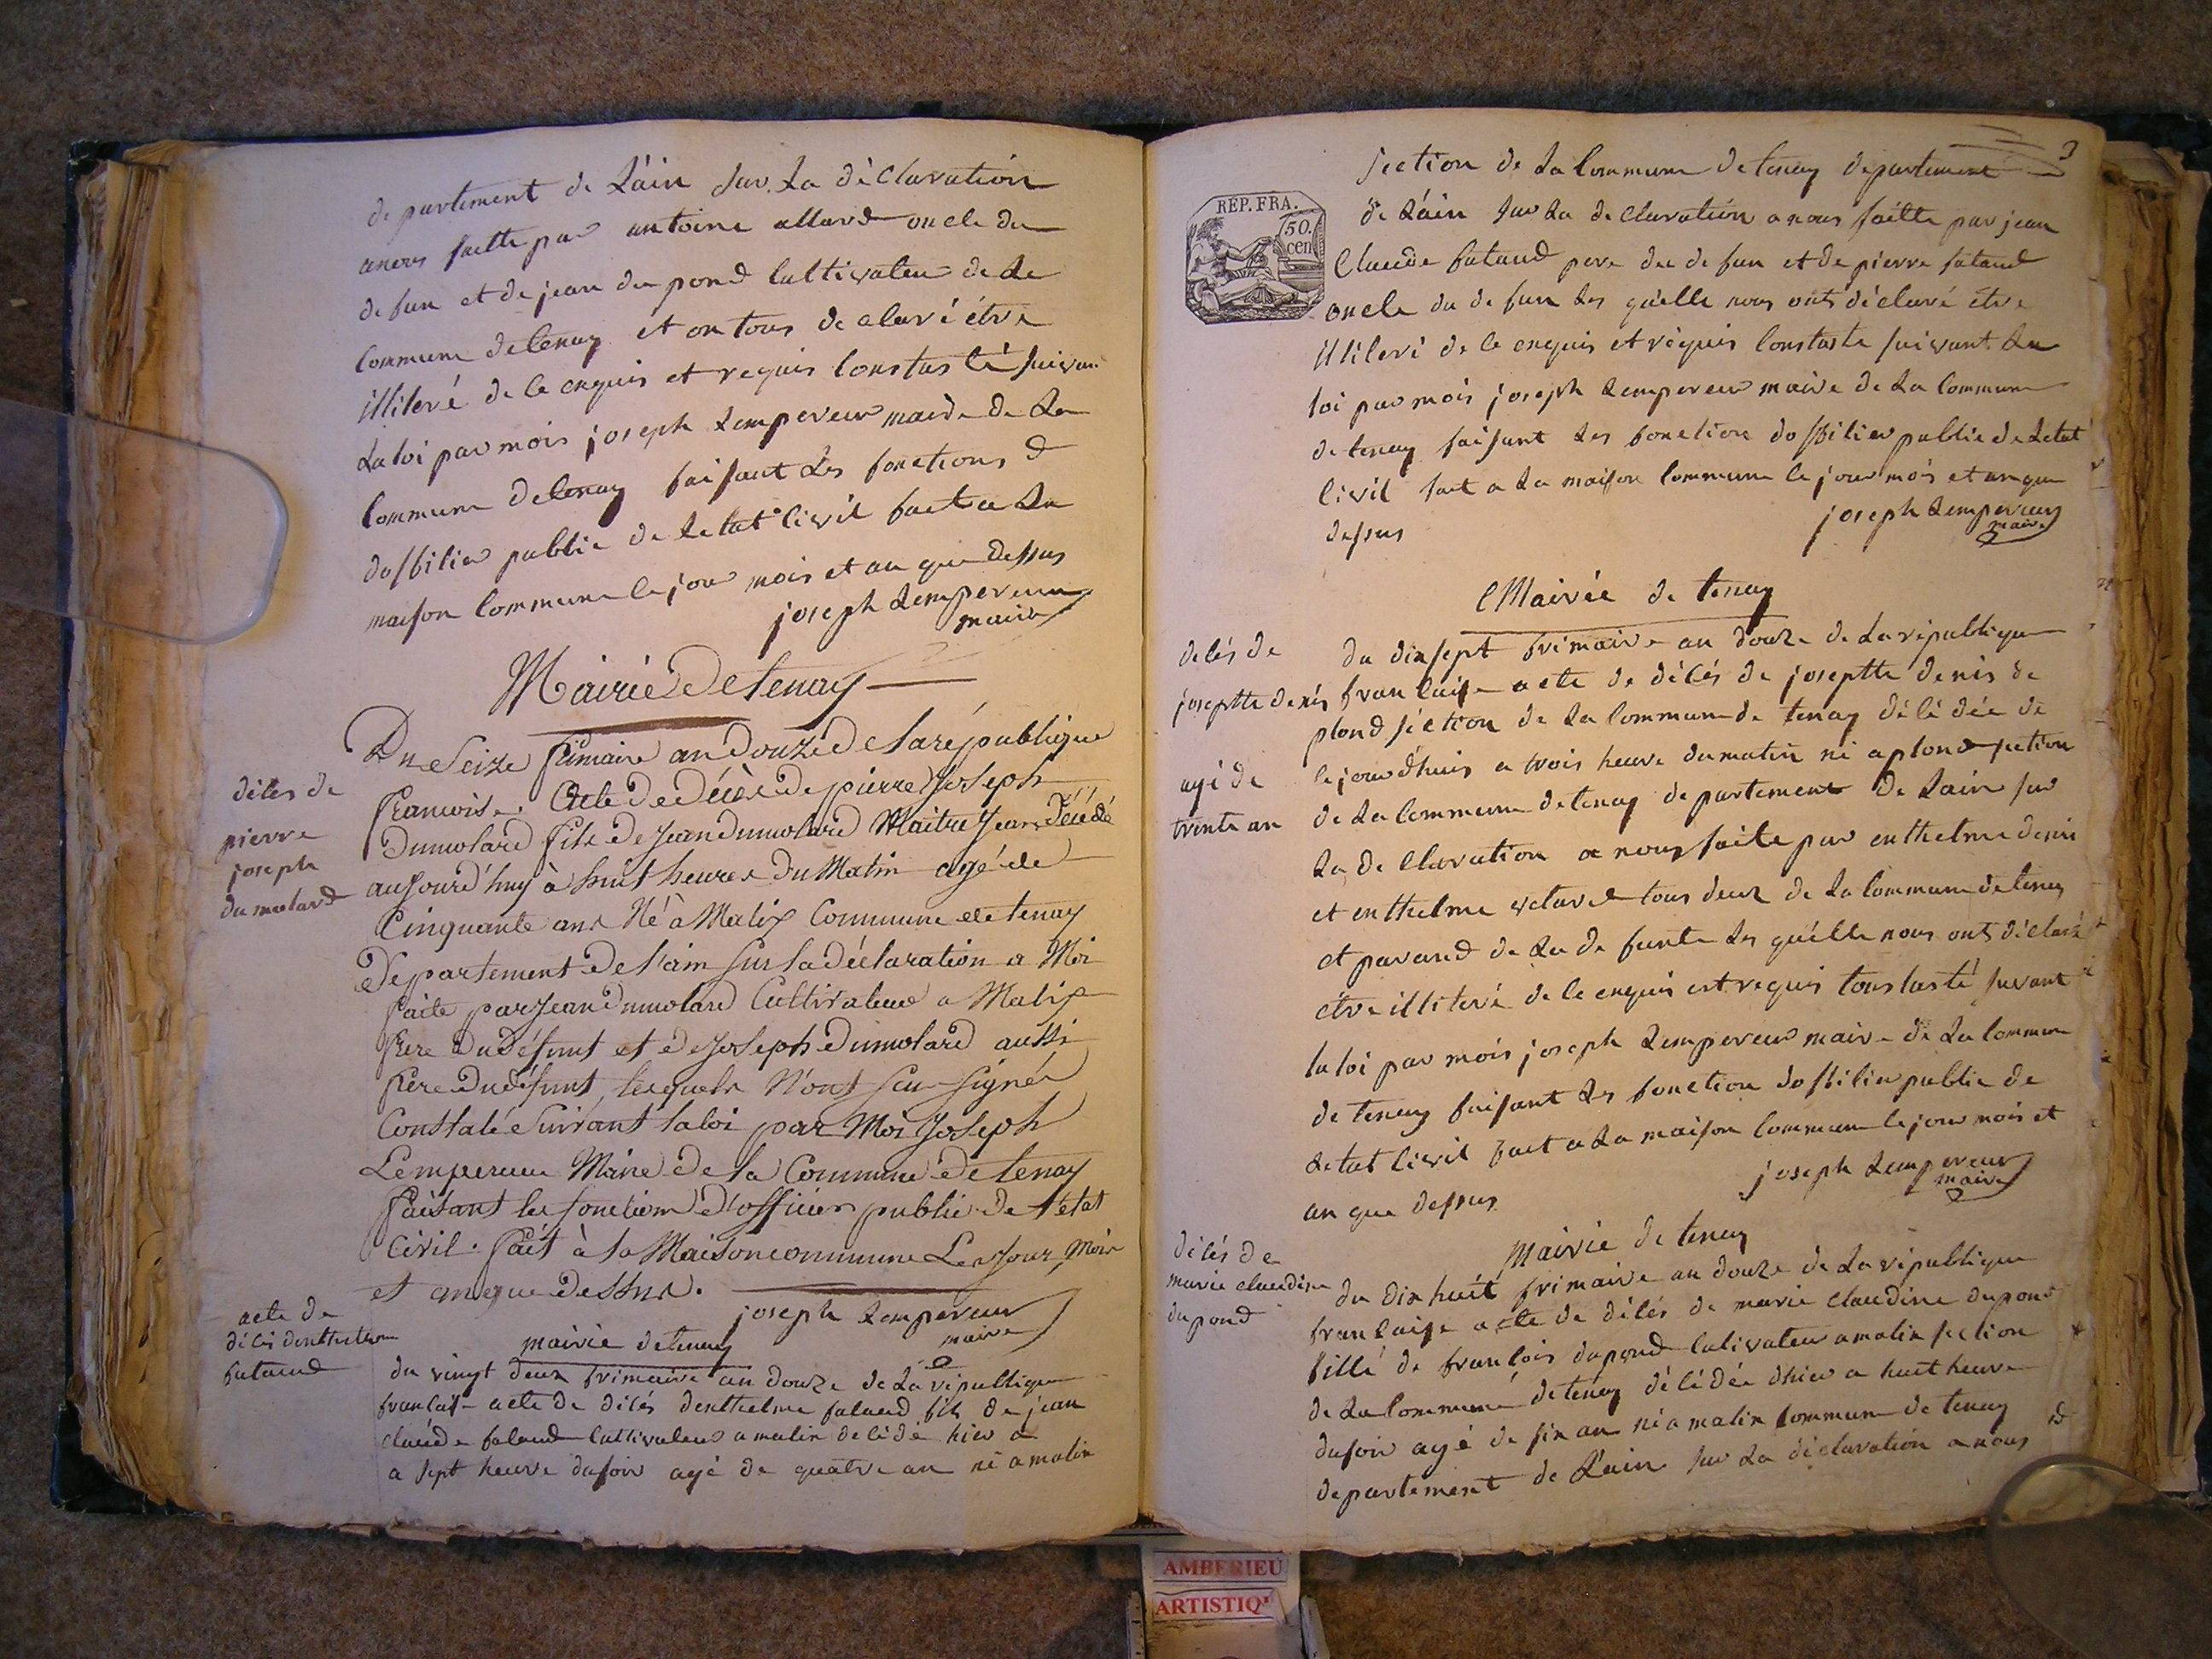 departement de Lain sur La déClaration
anous faitte par antoine allard oncle du
defun et de jean du pond Cultivateur de La
Commune de tenay et on tous declaré étre
illiteré de Ce enquis et requis Constasté suivan
La loi par mois joseph Lempereur maire de La
Commune de tenay faisant Les fonctions d
dosfitier public de Letat Civil fact a La
maison Commune le jour mois et an que dessus
joseph Lempereur
maire
Mairie de tenay
Du Seize frimaire an douze de la république
francoise. Acte de Décès de pierre Joseph
Dumolard fils de Jean dumolard Maitre Jean Décédé
aujourd'huy à huit heures du Matin agé de
Cinquante ans Né à Malix Commune de tenay
Departement de l'ain sur la déclaration a Moi
faite par Jean dumolard Cultivateur a Malix
frere du Défunt et de Joseph dumolard aussi
frere du défunt lesquels N'ont scu signér
Constaté Suivant la loi par Moi Joseph
Lempereur Maire de la Commune de tenay
faisant les fonctions d'officier public de l'état
Civil. fait à la Maison commune Le Jour, Mois
et an que dessus.
joseph Lempereur
maire
décés de
pierre
joseph
dumolard
acte de
décés denthelme
futaud
mairie de tenay
du vingt deux frimaire an douze de La républiqu
francaise acte de décés denthelme futaud fils de jean
claude futaud Cultivateur a malix décédé hier a
a sept heure du soir agé de quatre an né a malix
3
RÉP. FRA.
50.
cen
section de La Commune de tenay departement
de Lain sur La declaration a nous faitte par jean
Claude futaud pere du defun et de pierre futaud
oncle du defun Les quelle nous onts déclaré étre
illiteré de Ce enquis et réquis Constaste suivant La
loi par mois joseph Lempereur maire de La Commune
de tenay faisant Les fonction dosfitier public de Létat
Civil fact a La maison Commune le jour mois et an que
dessus
joseph Lempereur
maire
Mairée de tenay
décés de
joseptte denis
agé de
trente an
du dix sept frimaire an douze de La république
francaise acte de décés de joseptte denis de
plond section de La Commune de tenay décédée de
ce jourd'huis a trois heure du matin né a plond section
de La Commune de tenay departement de Lain sur
La declaration a nous faite par enthelme denis
et enthelme votard tous deux de La Commune de tenay
et parand de La defunte Les quélle nous onts déclaré
étre illiteré de Ce enquis est requis Constasté suvant
la loi par mois joseph Lempereur maire de La Commune
de tenay faisant Les fonction dosfitier public de
Letat Civil fact a La maison Commune le jour mois et
an que dessus
joseph Lempereur
maire
décés de
marie claudine
dupond
Mairie de tenay
du dix huit frimaire an douze de La république
francaise acte de décés de marie claudine dupond
fille de francois dupond Cultivateur a malix section
de La Commune de tenay décédée dhier a huit heure
du soir agé de six an né a malix Commune de tenay
departement de Lain sur La déclaration a nous
AMBERIEU
ARTISTIQ'